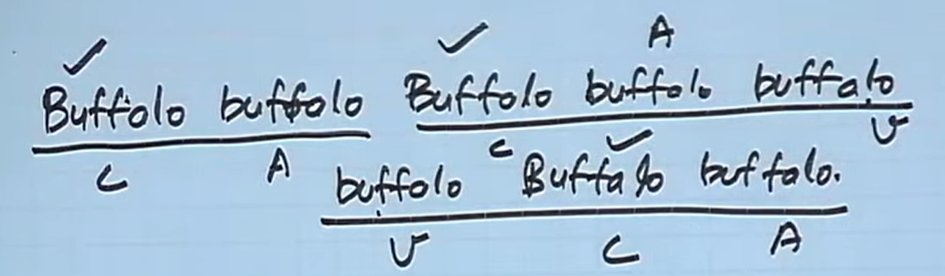 ✓ ✓ A
Buffalo buffalo Buffalo buffalo buffalo
C A C ✓ V
buffalo Buffalo buffalo.
V C A